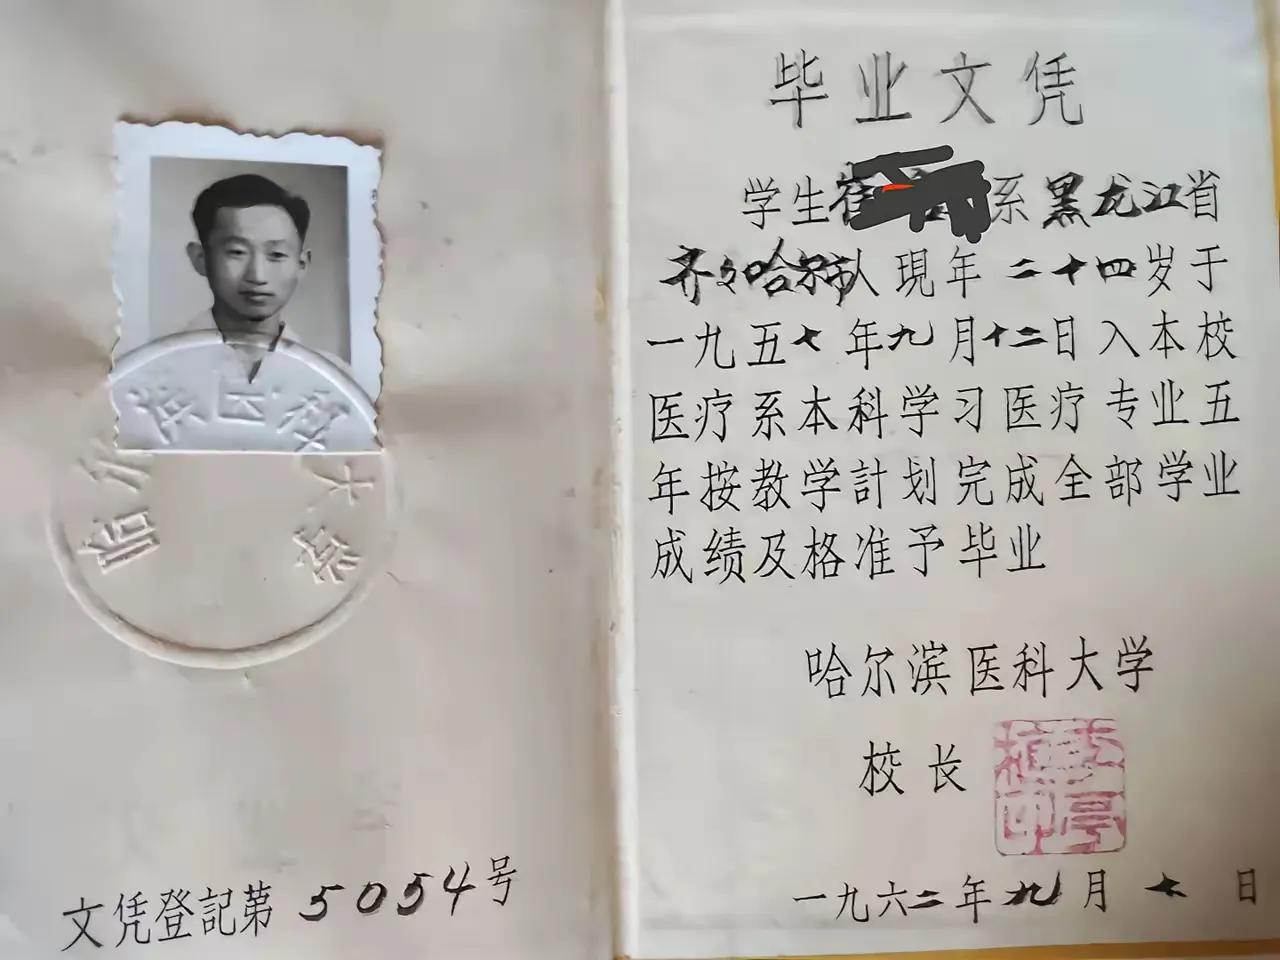 哈尔滨医科大学
文凭登記第5054号
毕业文凭
学生崔系黑龙江省
齐々哈尔市人現年二十四岁于
一九五七年九月十二日入本校
医疗系本科学习医疗专业五
年按教学計划完成全部学业
成绩及格准予毕业
哈尔滨医科大学
校长
一九六二年九月七日